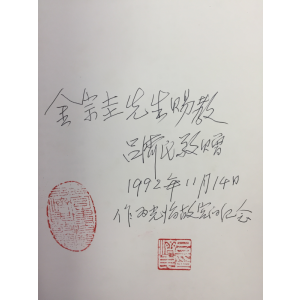 金宗圭先生赐教
吕济民敬赠
1992年11月14日
作为光临故宫的纪念